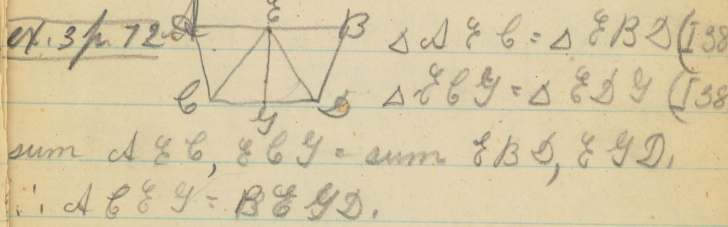 ex. 3 p. 72
A E B
C G D
△ A E C = △ E B D (I 38
△ E C G = △ E D G (I 38
sum A E C, E C G = sum E B D, E G D.
∴ A C E G = B E G D.